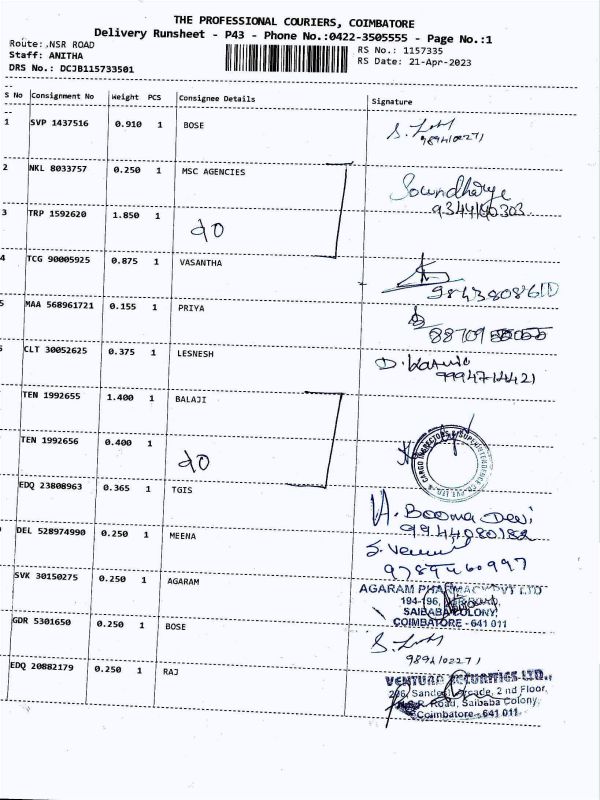 THE PROFESSIONAL COURIERS, COIMBATORE
Delivery Runsheet - P43 - Phone No.:0422-3505555 - Page No.:1
Route: NSR ROAD
Staff: ANITHA
DRS No.: DCJB115733501
RS No.: 1157335
RS Date: 21-Apr-2023
S No Consignment No Weight PCS Consignee Details Signature
1 SVP 1437516 0.910 1 BOSE
2 NKL 8033757 0.250 1 MSC AGENCIES
Soundharya
9344140303
3 TRP 1592620 1.850 1
do
4 TCG 90005925 0.875 1 VASANTHA
9843808610
5 MAA 568961721 0.155 1 PRIYA
CLT 30052625 0.375 1 LESNESH
TEN 1992655 1.400 1 BALAJI
TEN 1992656 0.400 1
do
EDQ 23808963 0.365 1 TGIS
H. Booma Devi
9944080182
DEL 528974990 0.250 1 MEENA
9789460997
SVK 30150275 0.250 1 AGARAM
AGARAM PHARMACY PVT LTD
194-196,
SAIBABA COLONY
COIMBATORE - 641 011
GDR 5301650 0.250 1 BOSE
EDQ 20882179 0.250 1 RAJ
VENTURA SECURITIES LTD.,
2nd Floor,
Road, Saibaba Colony,
Coimbatore - 641 011.